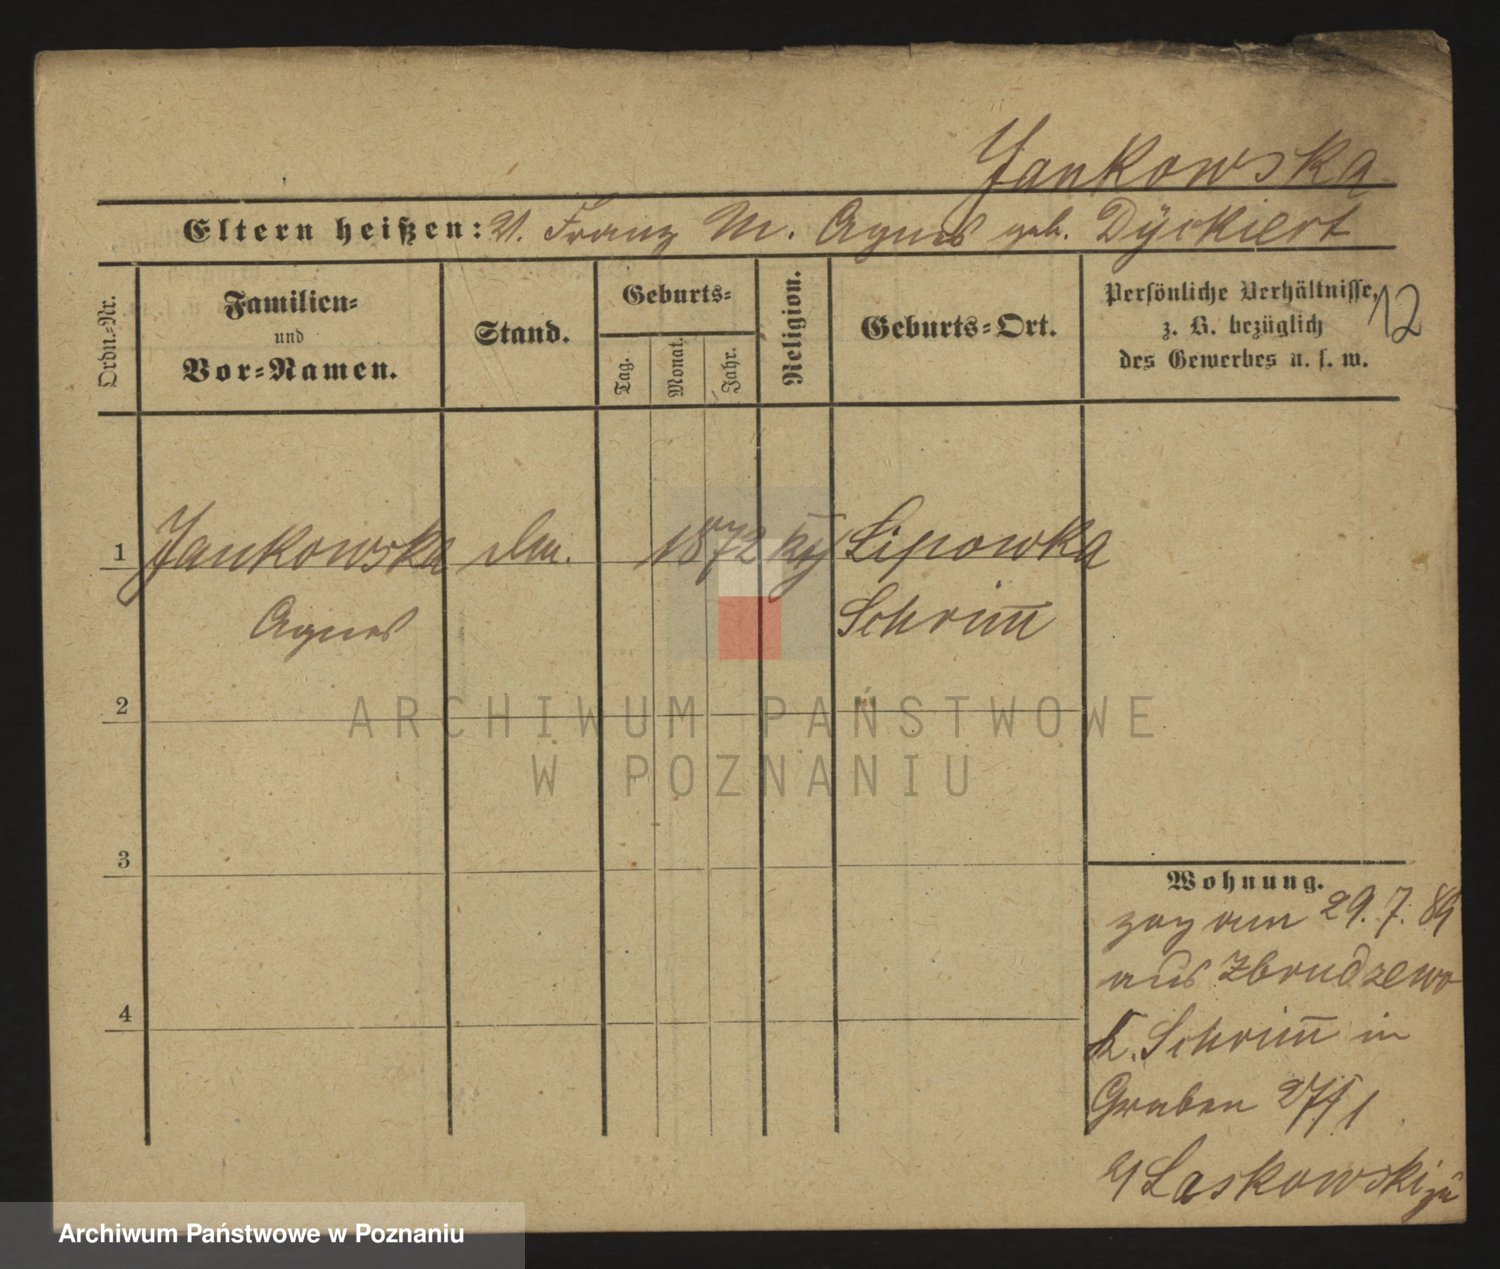 Jankowska
Eltern heißen: V. Franz M. Agnes geb. Dÿckiert
Ordn.-Nr.
Familien-
und
Vor-Namen.
Stand.
Geburts-
Tag.
Monat.
Jahr.
Religion.
Geburts-Ort.
Persönliche Verhältnisse,
z. B. bezüglich
des Gewerbes u. s. w.
12
1 Jankowska 1872 Lipowka
Agnes Schrim̄
2
3
4
Wohnung.
zog am 29. 7. 89
aus Zbrudzewo
K. Schrim̄ in
Graben
Laskowski
ARCHIWUM PAŃSTWOWE
W POZNANIU
Archiwum Państwowe w Poznaniu